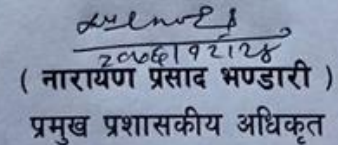 २०७६।१२।२४
( नारायण प्रसाद भण्डारी )
प्रमुख प्रशासकीय अधिकृत